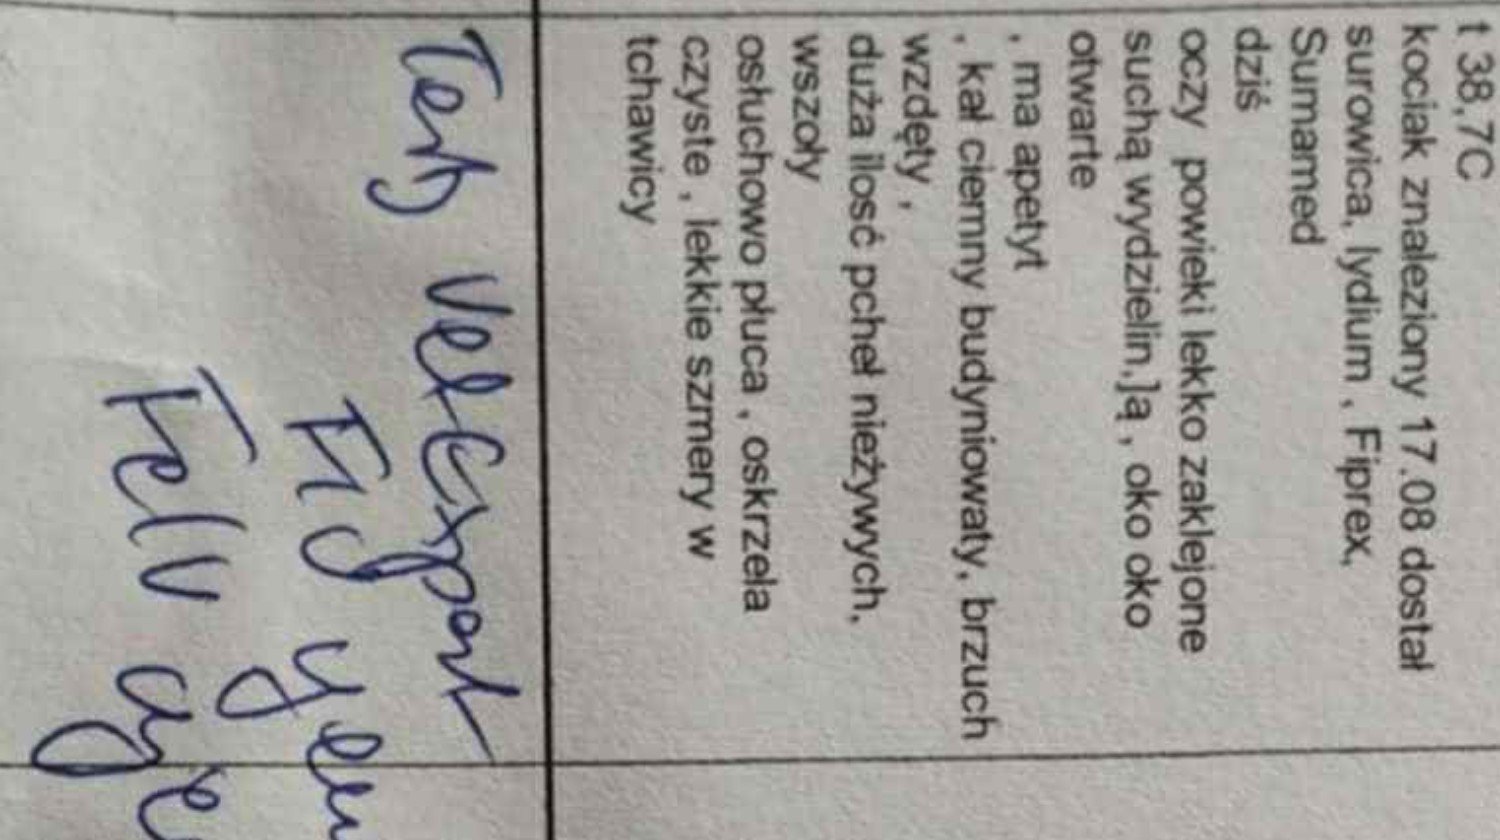 t 38,7C
kociak znaleziony 17.08 dostał
surowica, lydium , Fiprex,
Sumamed
dziś
oczy powieki lekko zaklejone
suchą wydzielin,]ą , oko oko
otwarte
, ma apetyt
, kał ciemny budyniowaty, brzuch
wzdęty ,
duża ilość pcheł nieżywych,
wszoły
osłuchowo płuca , oskrzela
czyste , lekkie szmery w
tchawicy
Test VetExpert
FIV
FelV